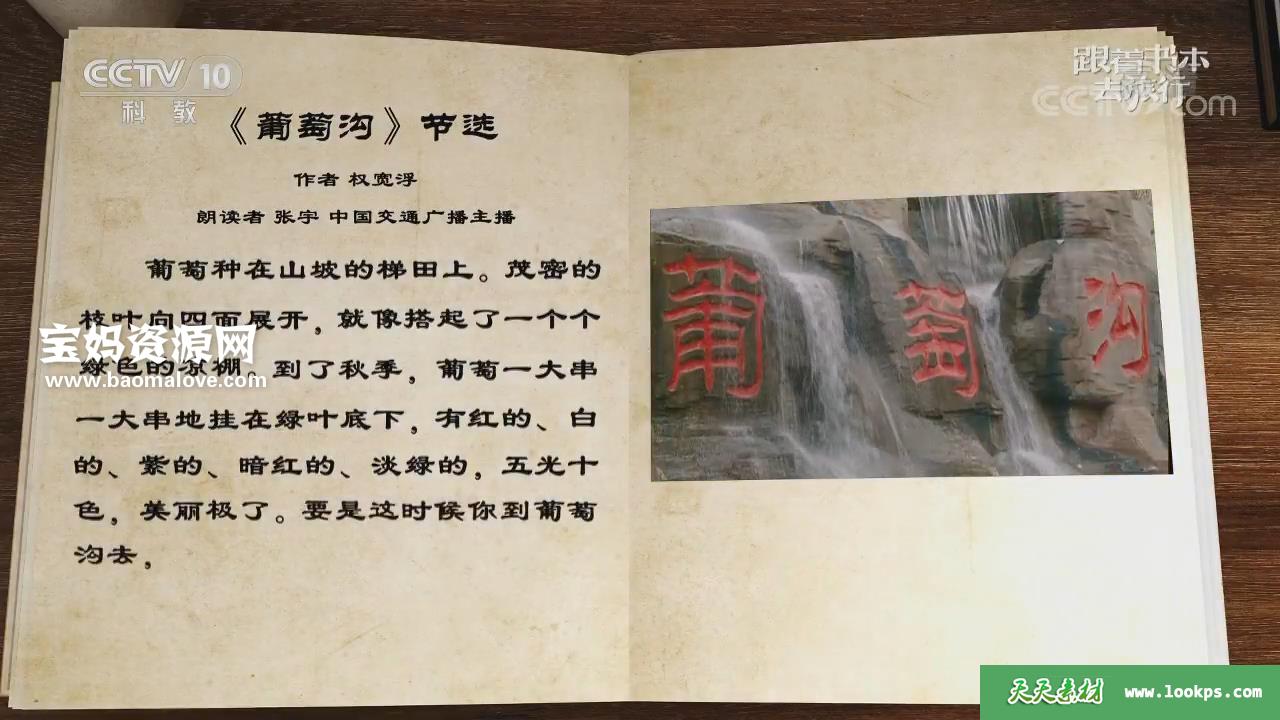 CCTV 10
科教
跟着书本
去旅行
《葡萄沟》节选
作者 权宽浮
朗读者 张宇 中国交通广播主播
葡萄种在山坡的梯田上。茂密的
枝叶向四面展开，就像搭起了一个个
绿色的凉棚。到了秋季，葡萄一大串
一大串地挂在绿叶底下，有红的、白
的、紫的、暗红的、淡绿的，五光十
色，美丽极了。要是这时候你到葡萄
沟去，
葡萄沟
宝妈资源网
www.baomalove.com
天天素材 www.lookps.com